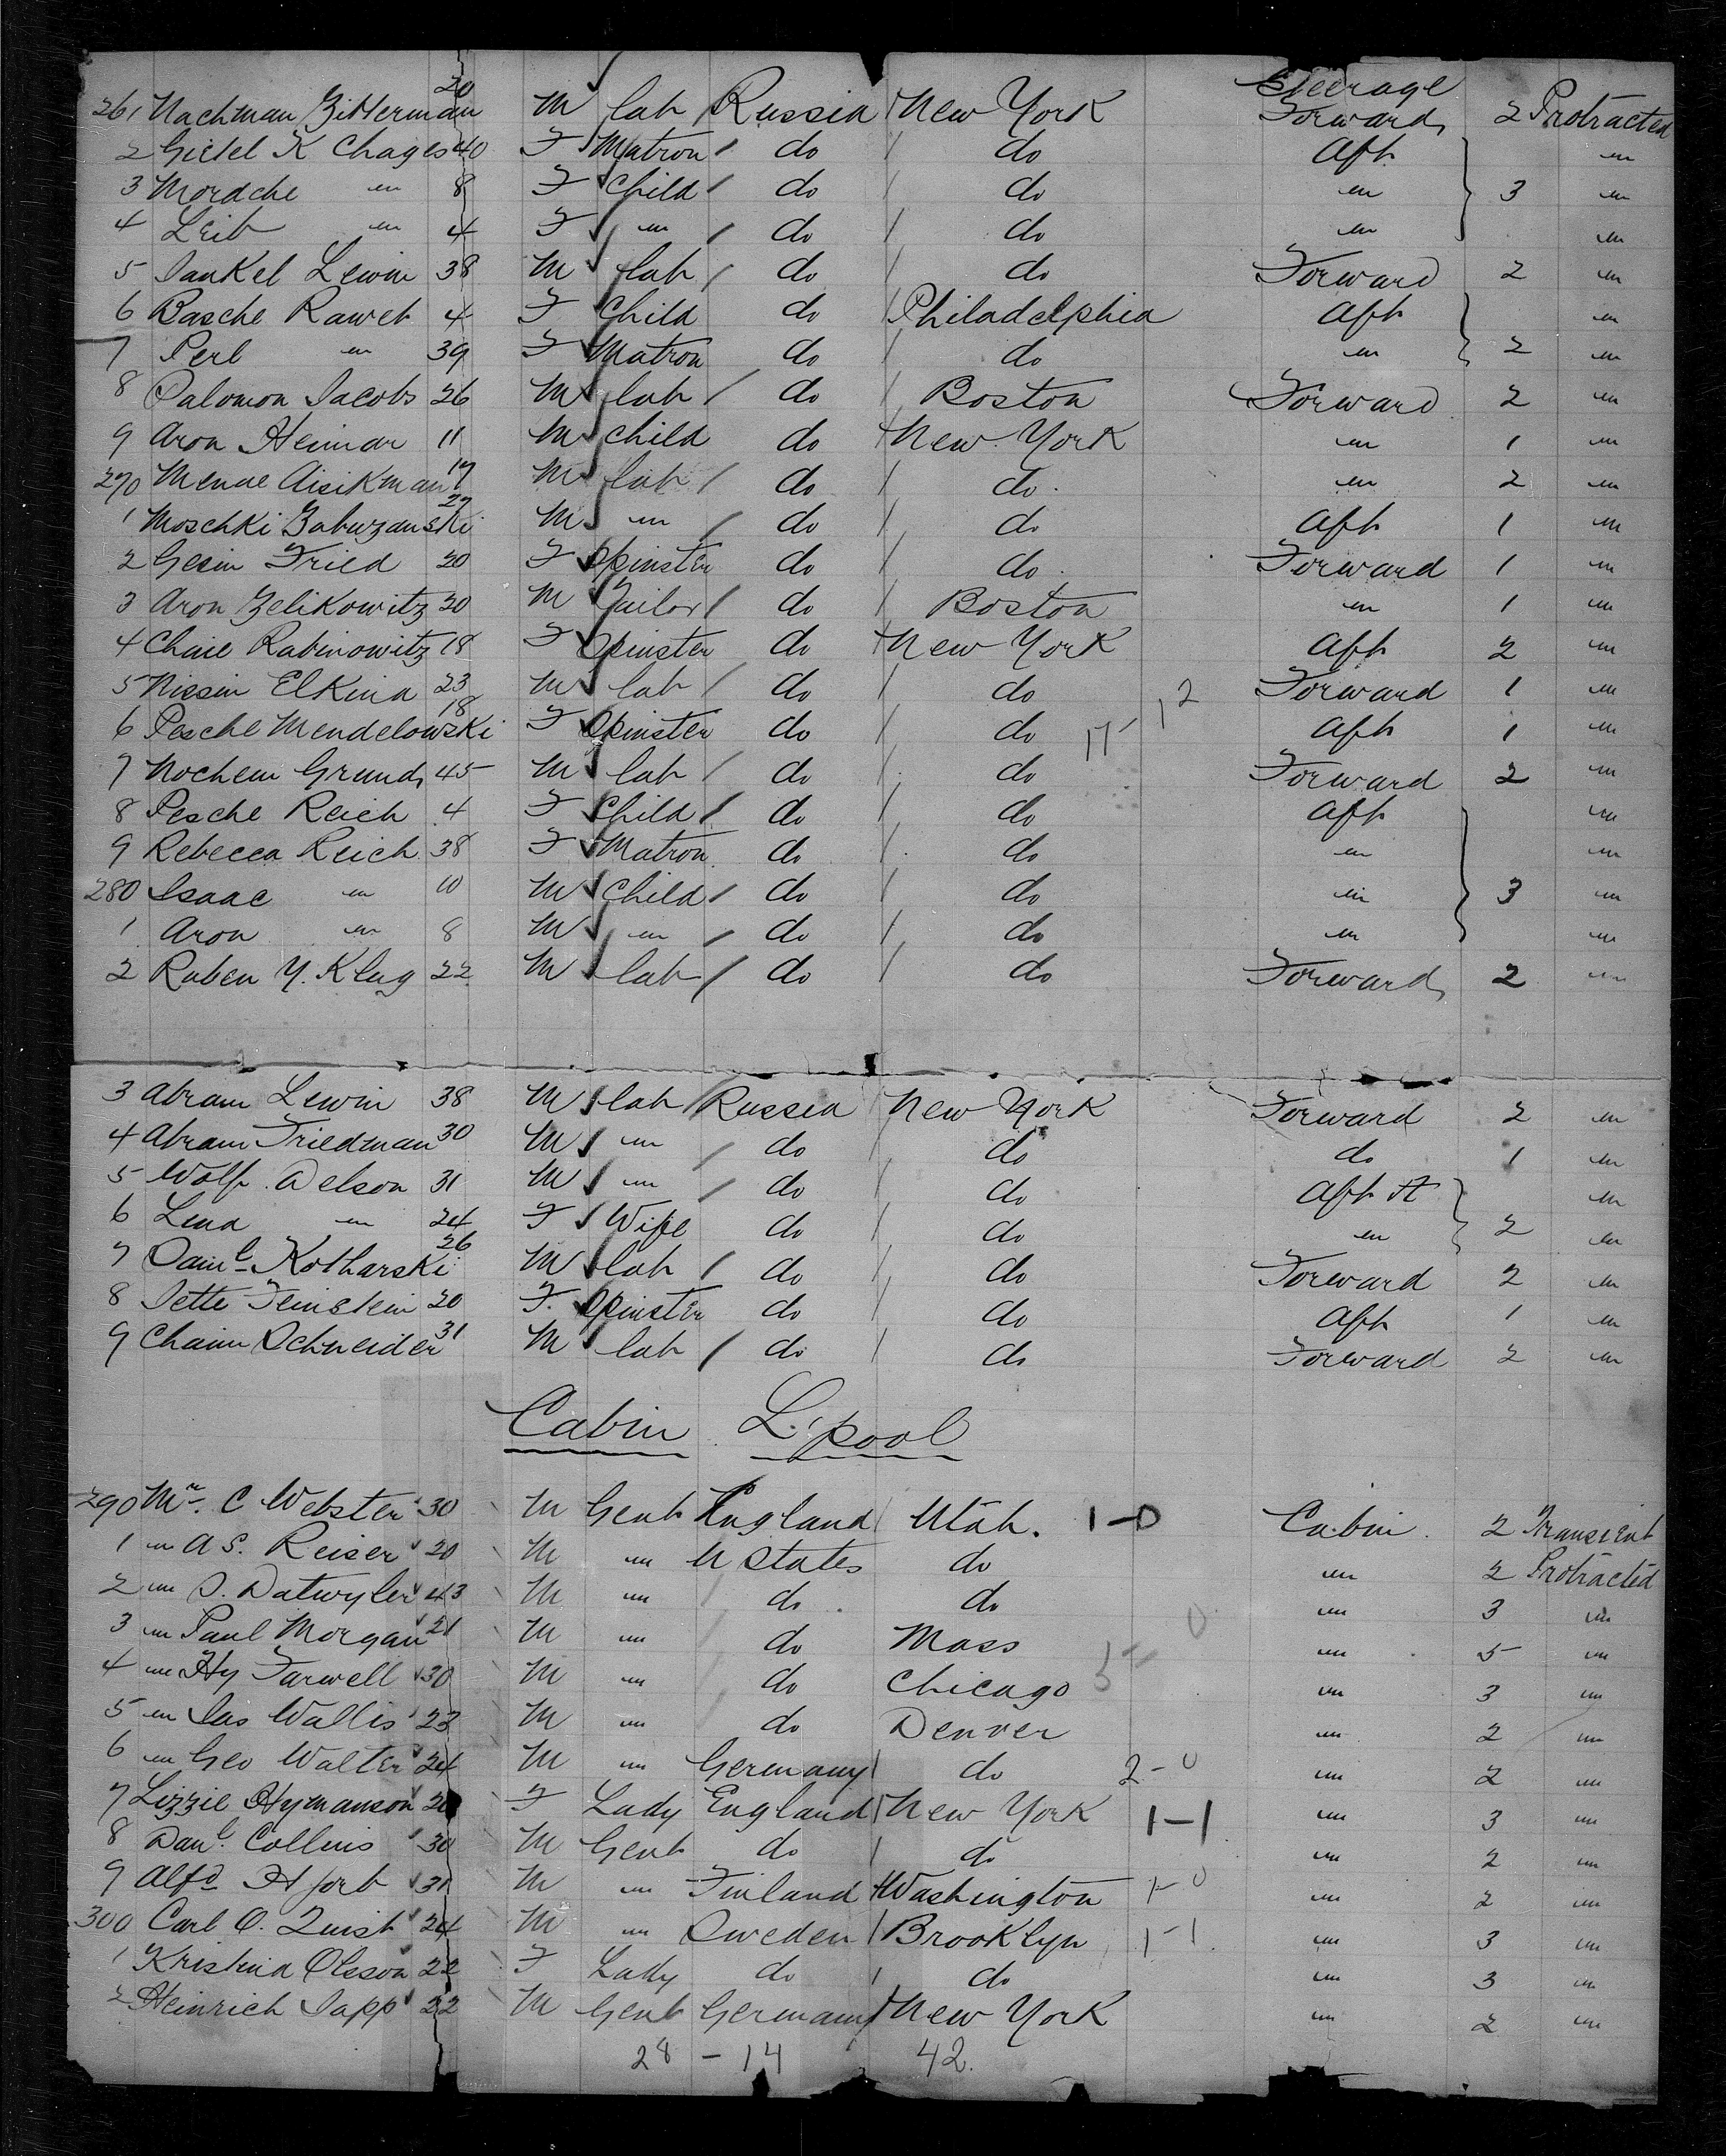 20 Steerage
261 Nachman Zitterman M lab Russia New York Forward 2 Protracted
2 Gietel K Chages 40 F Matron do do Aft "
3 Mordche " 8 F Child do do " 3 "
4 Leib " 4 F " do do " "
5 Jankel Lewin 38 M lab do do Forward 2 "
6 Basche Rawet 4 F Child do Philadelphia Aft "
7 Perl " 39 F Matron do do " 2 "
8 Salomon Jacobs 26 M lab do Boston Forward 2 "
9 Aron Heimar 11 M Child do New York " 1 "
270 Menue Aisikman 17 M lab do do " 2 "
1 Moschki Zabuzanski 27 M " do do Aft 1 "
2 Gesin Fried 20 F Spinster do do Forward 1 "
3 Aron Zelikowitz 20 M Tailor do Boston " 1 "
4 Chaie Rabinowitz 18 F Spinster do New York Aft 2 "
5 Nissin Elkina 23 M lab do do Forward 1 "
6 Pesche Mendelowski 18 F Spinster do do 17 - 12 Aft 1 "
7 Nochem Grund 45 M lab do do Forward 2 "
8 Pesche Reich 4 F Child do do Aft "
9 Rebecca Reich 38 F Matron do do " "
280 Isaac " 10 M Child do do " 3 "
1 Aron " 8 M " do do " "
2 Ruben Y. Klug 22 M lab do do Forward 2 "
3 Abram Lewin 38 M lab Russia New York Forward 2 "
4 Abram Friedman 30 M " do do do 1 "
5 Wolf Delson 31 M " do do Aft "
6 Lena " 24 F Wife do do " 2 "
7 Saml Kotharski 26 M lab do do Forward 2 "
8 Jette Feinstein 20 F. Spinster do do Aft 1 "
9 Chaim Schneider 31 M lab do do Forward 2 "
Cabin L'pool
290 Mr. C Webster 30 M Gent England Utah. 1-0 Cabin 2 Transient
1 " A S. Reiser 20 M " U States do " 2 Protracted
2 " S. Datwyler 43 M " do do " 3 "
3 " Paul Morgan 21 M " do Mass " 5 "
4 " Hy Farwell 30 M " do Chicago 5 - 0 " 3 "
5 " Jas Wallis 23 M " do Denver " 2 "
6 " Geo Walter 24 M " Germany do 2-0 " 2 "
7 Lizzie Hymanson F Lady England New York 1-1 " 3 "
8 Danl Collins 30 M Gent do do " 2 "
9 Alfd Hjort 31 M " Finland Washington 1-0 " 2 "
300 Carl O. Quist 24 M " Sweden Brooklyn 1-1 " 3 "
1 Kristina Olsson 22 F Lady do do " 3 "
2 Heinrich Sapp 22 M Gent Germany New York " 2 "
28 - 14 42.